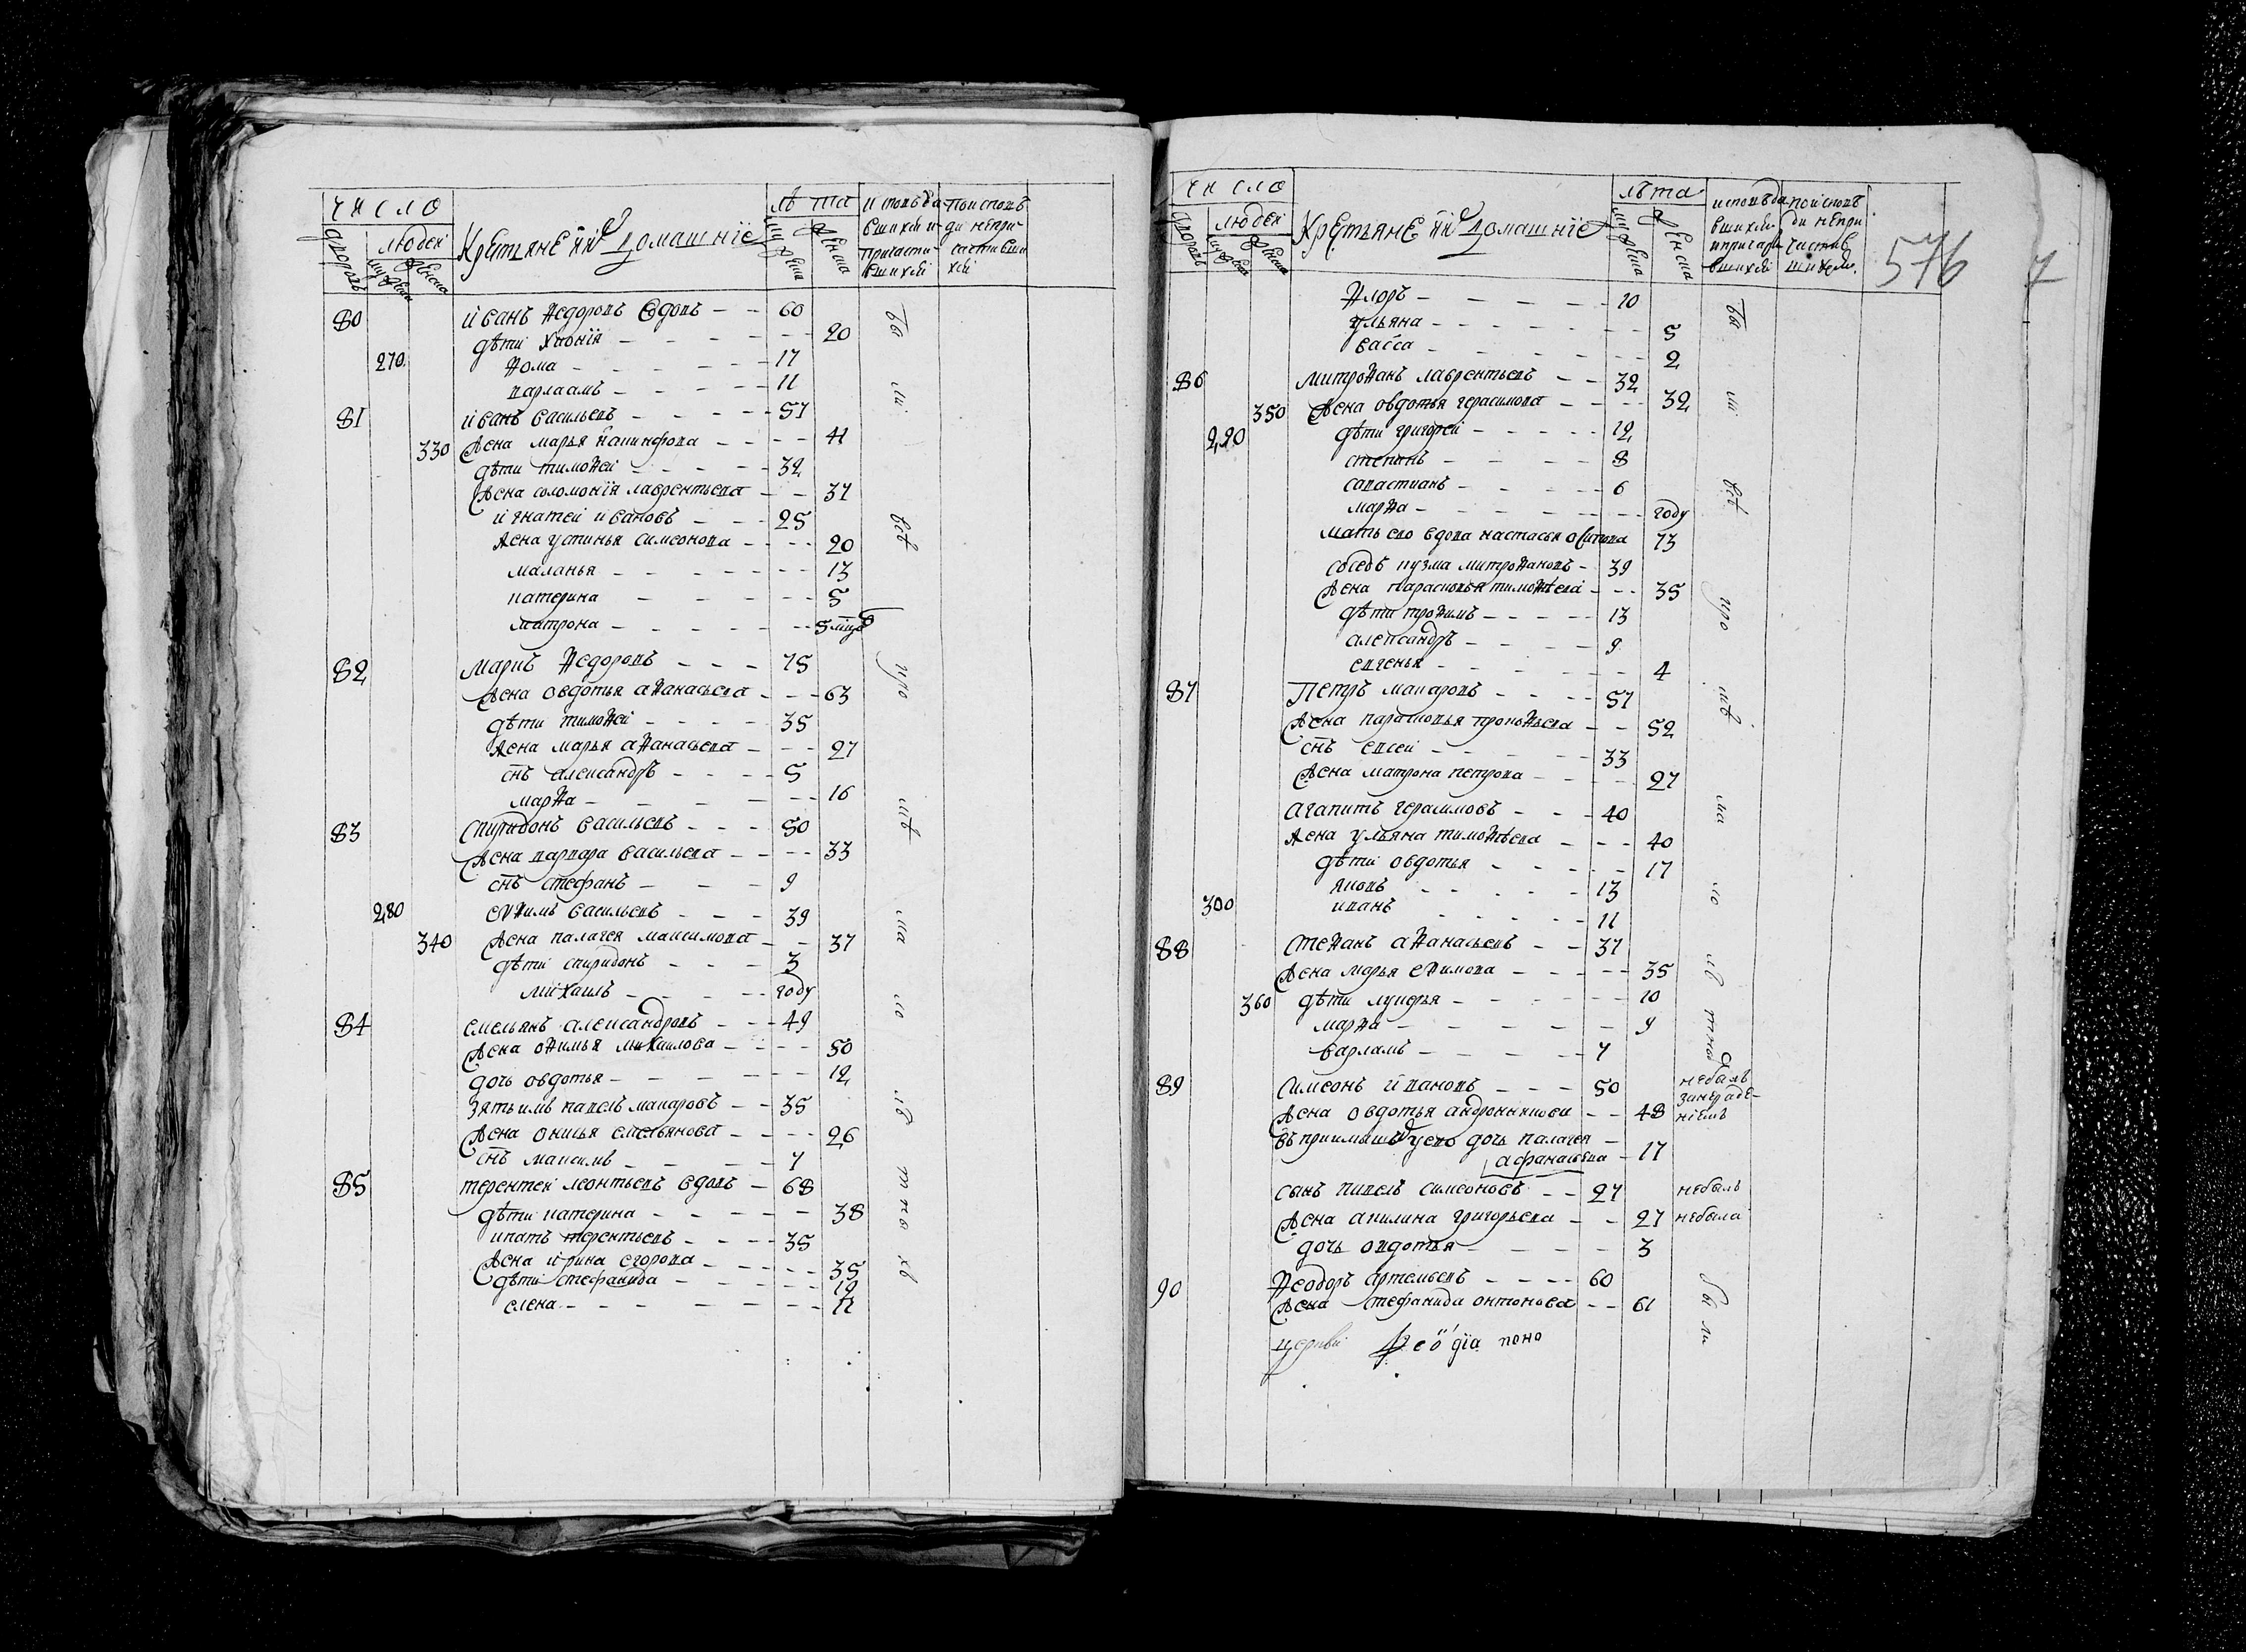 число
лѣта
исповѣда поисповѣ
людей
Крестьяне ӣ ихъ домашнїе
вшихся и ди непри
причасти частивши
вшихся хся
дворовъ мужеска женска мужеска женска
80 иванъ Ѳедоровъ вдовъ 60
дѣти хионїя 20
270 Ѳома 17
варлаамъ 11
81 иванъ васильевъ 57
330 жена марья 41
дѣти тимоѳей 32
жена соломонїя лаврентьева 37
игнатей ивановъ 25
жена устинья симеонова 20
маланья 13
катерина 5
матрона 5 мцъ
82 маркъ Ѳедоровъ 75
жена овдотья аѳанасьева 63
дѣти тимоѳей 35
жена марья аѳанасьева 27
снъ александръ 5
марѳа 16
83 спиридонъ васильевъ 50
жена варвара васильева 33
снъ стефанъ 9
280 еѳимъ васильевъ 39
340 жена палагея максимова 37
дѣти спиридонъ 3
михаилъ году
84 емельянъ александровъ 49
жена оѳимья михаилова 50
дочь овдотья 12
зять имъ павелъ макаровъ 35
жена онисья емельянова 26
снъ максимъ 7
85 терентей леонтьевъ вдовъ 68
дѣти катерина 38
ипатъ терентьевъ 35
жена ирина егорова 35
дѣти стефанида 12
елена 11
число
лѣта
исповѣда поисповѣ
людей
Крестьяне ӣ ихъ домашнїе
вшихся ди непри
ипричасти частив
вшихся шихся
дворовъ мужеска женска мужеска женска
576
7
Ѳлоръ 10
ульяна 5
васса 2
86 митроѳанъ лаврентьевъ 32
350 жена овдотья герасимова 32
290 дѣти григорей 12
степанъ 8
савастианъ 6
марѳа году
мать ево вдова настасья осипова 73
соседъ кузма митроѳановъ 39
жена парасковья тимоѳѣева 35
дѣти троѳимъ 13
александръ 9
евгенья 4
87 Петръ макаровъ 57
жена парасковья прокоѳьева 52
снъ евсей 33
жена матрона петрова 27
агапитъ герасимовъ 40
жена ульяна тимоѳѣева 40
дѣти овдотья 17
яковъ 13
300 иванъ 11
88 стеѳанъ аѳанасьевъ 37
жена марья еѳимова 35
360 дѣти лукерья 10
марѳа 9
варламъ 7
89 симеонъ ивановъ 50 небылъ
занерадѣ-
жена овдотья андроникова 48 нїемъ
въ приимышахъ у ево дочь палагея
афанасьева 17
сынъ павелъ симеоновъ 27 небылъ
жена акилина григорьева 27 небыла
дочь овдотья 3
90 Ѳеодоръ артемьевъ 60
жена стефанида онтонова 61
были
церкви